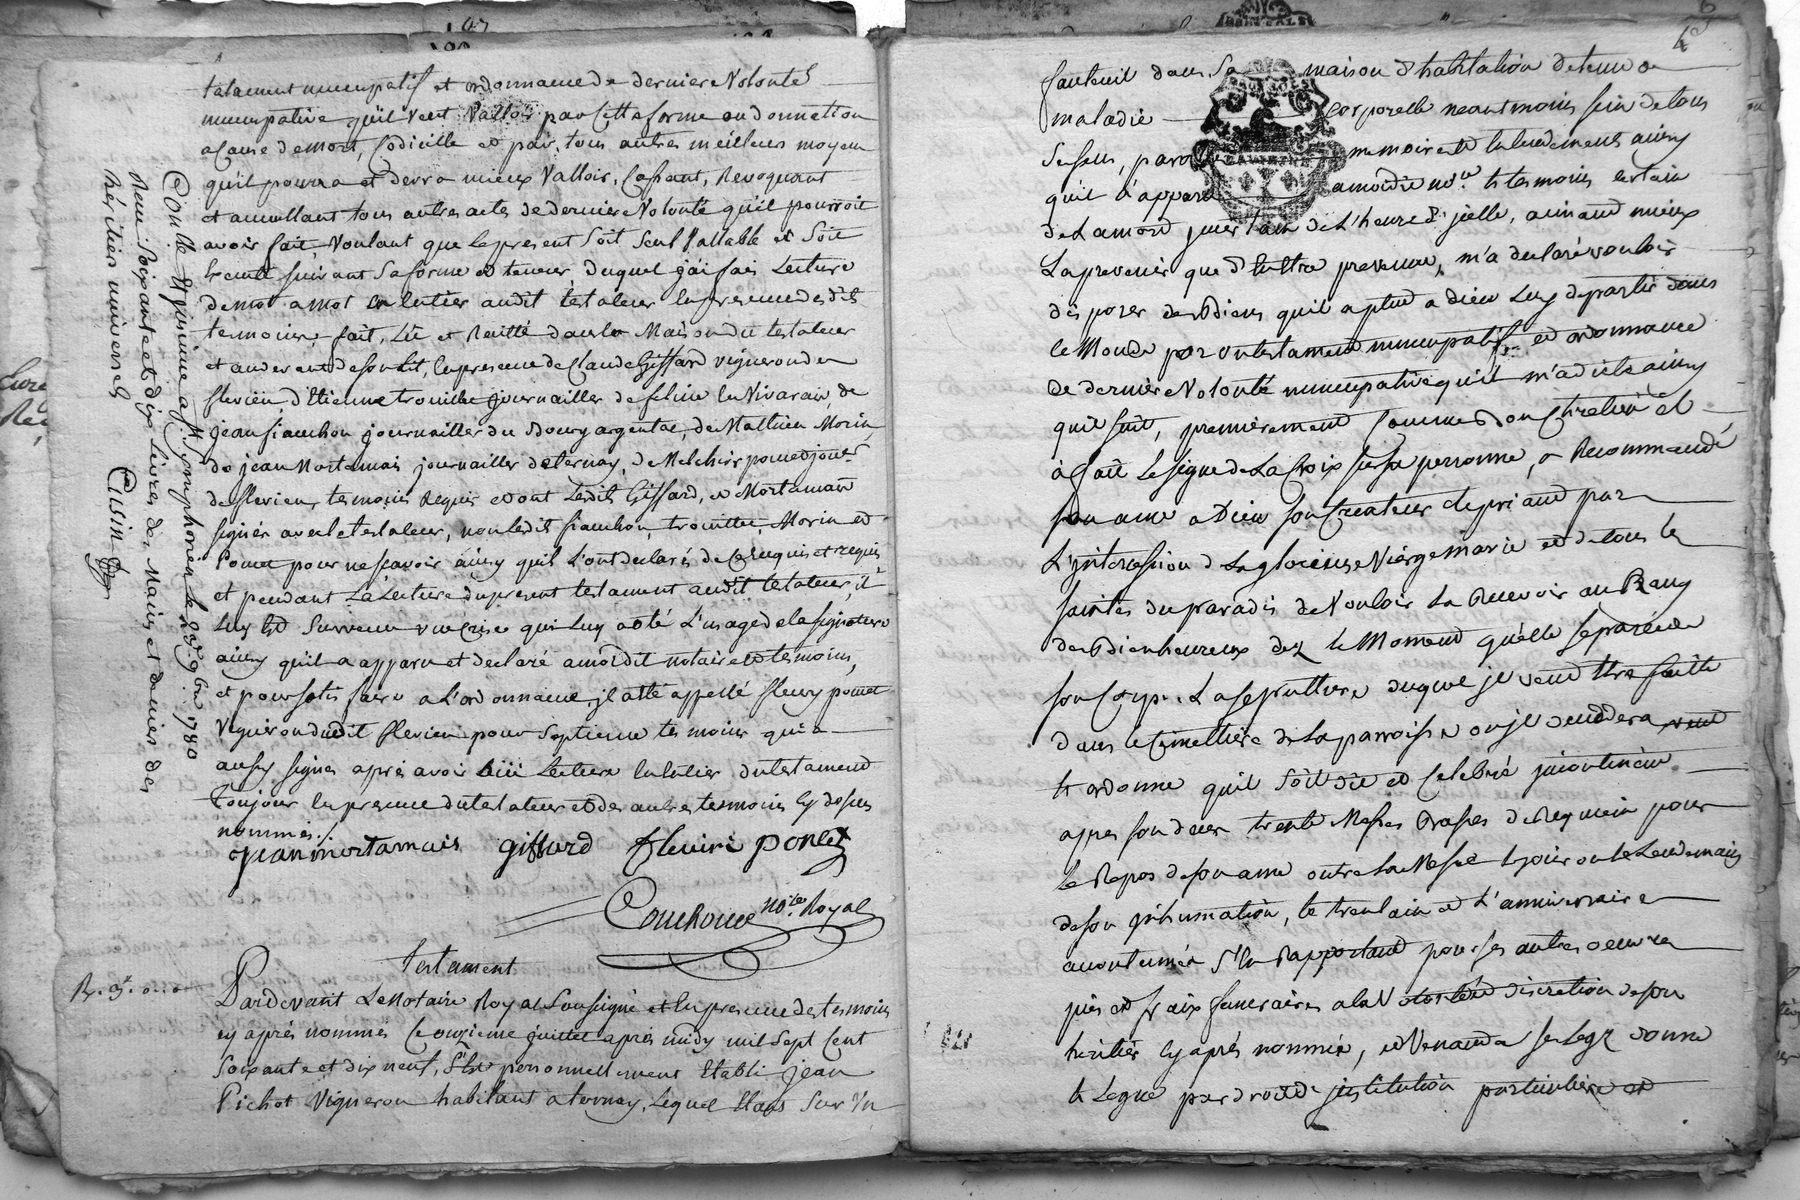 testament nuncupatif et ordonnance de derniere Volonté
nuncupative qu'il veut Valloir par Cette forme ou donnation
a Cause de mort, Codicille et par tous autres meilleurs moyens
qu'il pourra et devra mieux Valloir, Cassant, Revoquant
et annullant tous autres actes de derniere Volonté qu'il pourroit
avoir fait Voulant que le present Soit Seul Vallable et Soit
Executé suivant Sa forme et teneur duquel j'ai fait Lecture
de mot a mot en Entier audit testateur En presence desdits
temoins, fait, Lû et Recitté dans la Maison du testateur
et au devant de Son Lit, En presence de Claude Giffard vigneron de
flevien d'Etienne trouillet journaillier de felines En Vivarais, de
jean fianchon journaillier du Bourg argental, de Mathieu Morin,
de jean Mortamais journaillier de ternay, de Melchior ponset jour.r
de flevien, temoins Requis et dont Lesdits Giffard, et Mortamais
signés avec le testateur, non Lesdits fianchon, trouillet, Morin et
Poncet pour ne scavoir ainsy qu'il L'ont declarés de Ce Enquis et requis
et pendant La Lecture du present testament audit testateur, il
Luy Est Survenu une Crise qui Luy a oté L'usage de la signature
ainsy qu'il a apparu et declaré a moi dit notaire et temoins,
et pour satisfaire a L'ordonnance il a été appellé fleury poncet
Vigneron dudit flevien pour Septieme temoins qui a
aussy signes après avoir oüii Lecture En Entier du testament
Toujour En presence du testateur et des autres temoins Cy dessus
nommés./.
Jean mortamais giffard fleuiri poncet
Couchoud no.re Royal
Conllé Et jnsinué a St. Symphorien Le 23.e 9bre 1780
Reçu Soixante et dix Livres des Mains et deniers des
héritiers universels Cusin
testament
Pardevant Le Notaire Royal Soussigné et En presence des temoins
cy après nommés Ce onzieme juillet après midy mil Sept Cent
Soixante et dix neuf, S'Est personnellement Etabli jean
Pichot Vigneron habitant a ternay, Lequel Etans Sur Un
fauteuil dans Sa maison d'habitation detenu de
maladie Corporelle neantmoins sein de tous
Ses sens, parolle memoire et Entendement ainsy
qu'il a apparu a moi dit no.re Et temoins certain
de La mort, jncertain de L'heure d'jcelle, aimant mieux
La prevenir que d'En Etre prevenu, m'a declaré vouloir
disposer des Biens qu'il a plut a Dieu Luy departir dans
le Monde par un testament nuncupatif et ordonnance
de derniere Volonté nuncupative qu'il m'a dicté ainsy
qu'il suit, premièrement Comme Bon Chretien Et
à fait Le signe de La Croix sur sa personne, a Recommandé
son ame a Dieu son Createur Le priant par
L'jntercession de La glorieuse Vierge Marie et de tous les
saintes du paradis de Vouloir La Recevoir au Rang
des Bienheureux dez le Moment qu'elle se separera de
son Corps. La sepulture duquel je veux Etre faitte
dans le Cimettière de la parroisse ou je decedera veut
Et ordonne qu'il soit dit et Celebré jncontinent
apres son decès trente Messes Basses de Requiem pour
Le Repos de son ame outre La Messe Le jour ou le Lendemain
de son jnhumation, le trentain et L'anniversaire
accoutumés S'En Rapportant pour Ses autres oeuvres
pies et fraix funeraires a la Volonté et discretion de son
heritier Cy après nommée, et Venant a ses Legz donne
Et Legue par droit d'jnstitution particuliere et